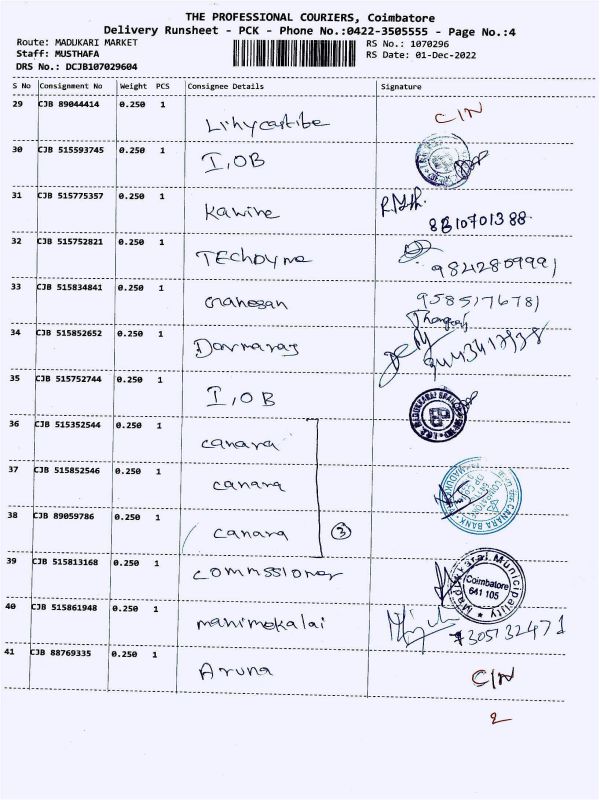 THE PROFESSIONAL COURIERS, Coimbatore
Delivery Runsheet - PCK - Phone No.:0422-3505555 - Page No.:4
Route: MADUKARI MARKET
Staff: MUSTHAFA
DRS No.: DCJB107029604
RS No.: 1070296
RS Date: 01-Dec-2022
S No Consignment No Weight PCS Consignee Details Signature
29 CJB 89044414 0.250 1 C/N
30 CJB 515593745 0.250 1 I,OB
31 CJB 515775357 0.250 1 Kawine 8810701388
32 CJB 515752821 0.250 1 TECHDyne 9842809991
33 CJB 515834841 0.250 1 9585176781
34 CJB 515852652 0.250 1 Darmaraj
35 CJB 515752744 0.250 1 I,OB
36 CJB 515352544 0.250 1 canara
37 CJB 515852546 0.250 1 canara CANARA BANK
38 CJB 89059786 0.250 1 canara 3
39 CJB 515813168 0.250 1 commssioner Municipality Coimbatore 641 105
40 CJB 515861948 0.250 1 manimekalai 7305132471
41 CJB 88769335 0.250 1 Aruna C/N
2